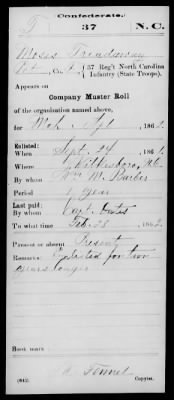 Confederate.
T 37 N.C.
Moses
Pvt, Co. 37 Reg't North Carolina
Infantry (State Troops).
Appears on
Company Muster Roll
of the organization named above,
for Mch & Apl, 1862.
Enlisted:
When Sept. 24, 1861.
Where Wilkesboro, N.C.
By whom Wm M. Barber
Period 1 year
Last paid:
By whom Capt.
To what time Feb. 28, 1862.
Present or absent Present
Remarks: Enlisted for two
years longer
Book mark:
(642) Copyist.